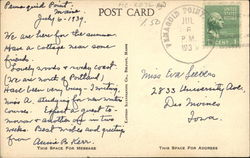 Pemaquid Point,
Maine
July 6-1939.
We are here for the summer
Have a cottage near some
friends.
Lovely woods & rocky coast
(We are north of Portland)
Have been very busy -
miss A. studying for more extra
Expect a guest to-
morrow & another off in two
weeks. Best wishes and greetings
from Annie B. Kerr.
THIS SPACE FOR MESSAGE
POST CARD
PEMAQUID POINT
JUL
6
P.M.
193
Miss Eva
2833 University Ave.
Des Moines
Iowa.
THIS SPACE FOR ADDRESS